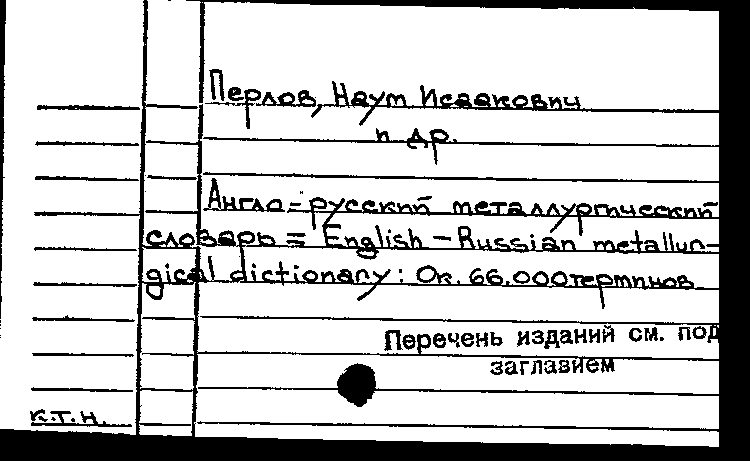 Перлов, Наум Исаакович
и др.
Англо-русский металлургический
словарь = English-Russian metallur-
gical dictionary: Ок. 66.000 терминов
Перечень изданий см. под
заглавием
к.т.н.